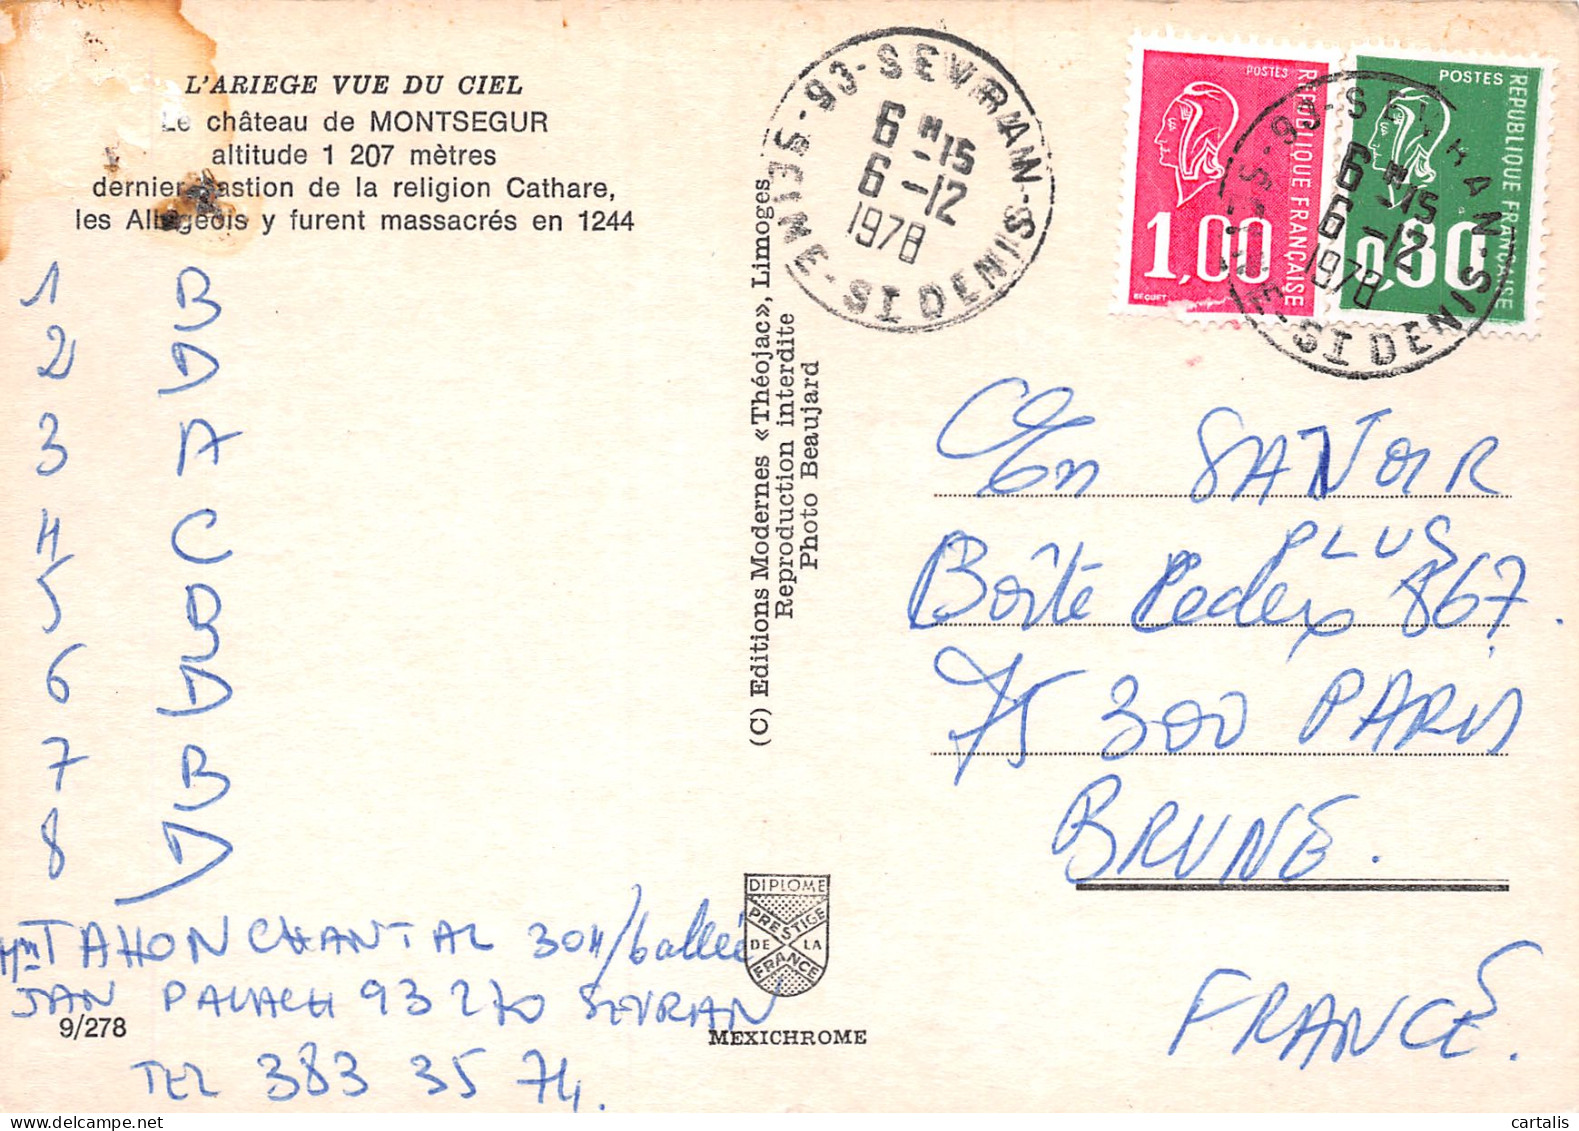 L'ARIEGE VUE DU CIEL
Le château de MONTSEGUR
altitude 1 207 mètres
dernier bastion de la religion Cathare,
les Albigeois y furent massacrés en 1244
1 B
2 D
3 A
4 C
5 B
6 D
7 B
8 D
Mme TAHON CHANTAL 304/ballée
JAN PALACH 93270 SEVRAN
9/278
TEL 383 35 74.
(C) Editions Modernes «Théojac», Limoges
Reproduction interdite
Photo Beaujard
DIPLOME
PRESTIGE
DE LA
FRANCE
MEXICHROME
93-SEVRAN
SEINE-ST DENIS
6 H 15
6 -12
1978
POSTES
REPUBLIQUE FRANÇAISE
1,00
BEQUET
POSTES
REPUBLIQUE FRANÇAISE
0,80
93-SEVRAN
SEINE-ST DENIS
6 H 15
6 -12
1978
En SAVOIR
PLUS
Boîte Pedex 867.
75 300 PARIS
BRUNE.
FRANCE.
cartalis